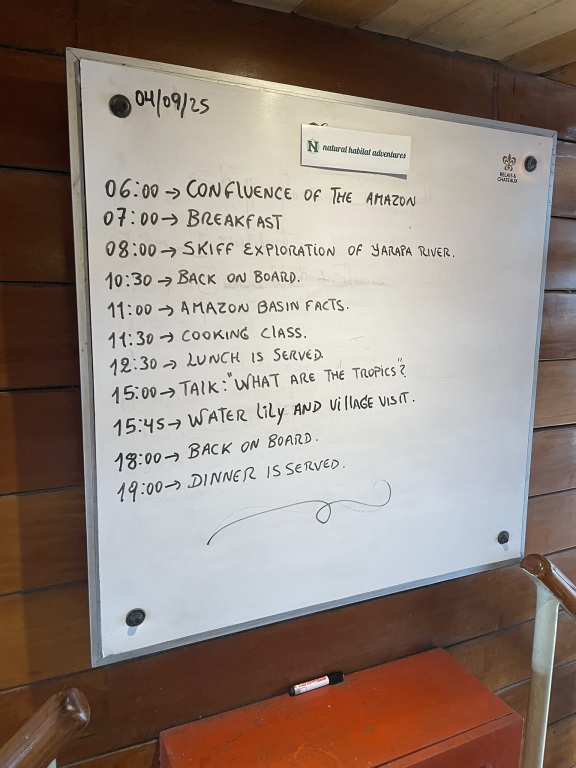 04/09/25
N natural habitat adventures
RELAIS &
CHATEAUX
06:00 → CONFLUENCE OF THE AMAZON
07:00 → BREAKFAST
08:00 → SKIFF EXPLORATION OF YARAPA RIVER.
10:30 → BACK ON BOARD.
11:00 → AMAZON BASIN FACTS.
11:30 → COOKING CLASS.
12:30 → LUNCH IS SERVED.
15:00 → TALK: "WHAT ARE THE TROPICS"?
15:45 → WATER lily AND VillAGE VISIT.
18:00 → BACK ON BOARD.
19:00 → DINNER IS SERVED.